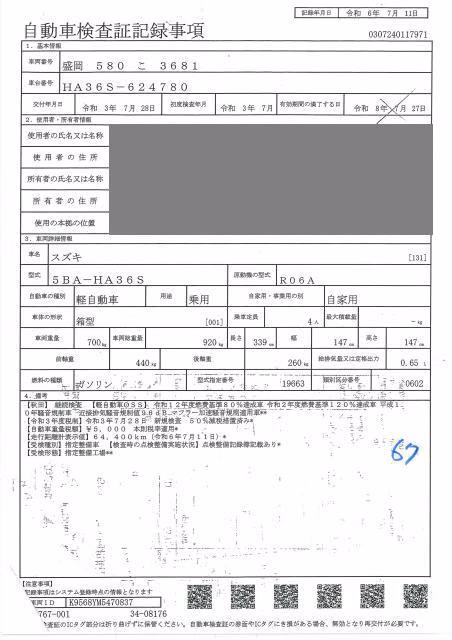 記録年月日 令和 6年 7月 11日
自動車検査証記録事項
0307240117971
1. 基本情報
車両番号 盛岡 580 こ 3681
車台番号 HA36S-624780
交付年月日 令和 3年 7月 28日 初度検査年月 令和 3年 7月 有効期間の満了する日 令和 8年 7月 27日
2. 使用者・所有者情報
使用者の氏名又は名称
使用者の住所
所有者の氏名又は名称
所有者の住所
使用の本拠の位置
3. 車両詳細情報
車名 スズキ [131]
型式 5BA-HA36S 原動機の型式 R06A
自動車の種別 軽自動車 用途 乗用 自家用・事業用の別 自家用
車体の形状 箱型 [001] 乗車定員 4人 最大積載量 -kg
車両重量 700kg 車両総重量 920kg 長さ 339cm 幅 147cm 高さ 147cm
前軸重 440kg 後軸重 260kg 総排気量又は定格出力 0.65 L
燃料の種類 ガソリン 型式指定番号 19663 類別区分番号 0602
4. 備考
【秋田】 継続検査 【軽自動車OSS】 令和12年度燃費基準80%達成車 令和2年度燃費基準120%達成車 平成1
0年騒音規制車 近接排気騒音規制値98dB マフラー加速騒音規制適用車**
【令和3年度税制】 令和3年7月28日 新規検査 50%減税措置済み*
【自動車重量税額】 ¥5,000 本則税率適用*
【走行距離計表示値】 64,400km (令和6年7月11日)*
【受検種別】指定整備車 【検査時の点検整備実施状況】点検整備記録簿記載あり*
【受検形態】指定整備工場**
67
【注意事項】
記載事項はシステム登録時点の情報となります
車両ID K9568YM5470837
767-001 34-08176
車検査証のICタグ部分は折り曲げずに保管ください。自動車検査証の券面やICタグにき損がある場合、無効となり再交付が必要です。